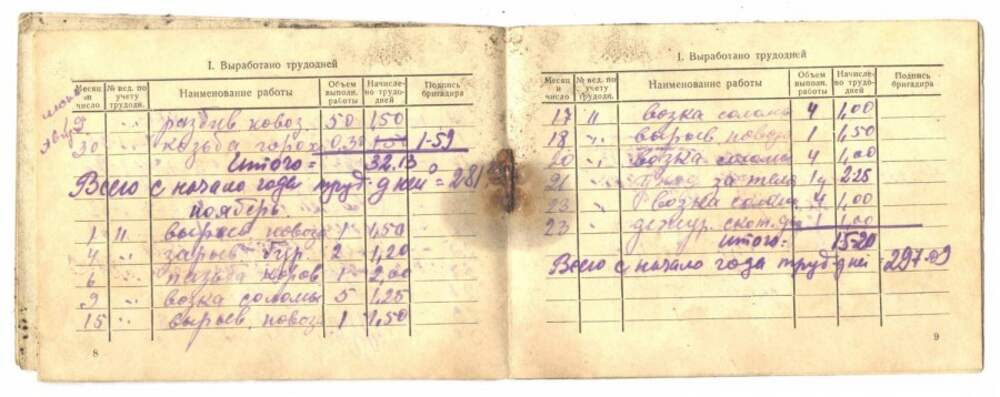 I. Выработано трудодней
Месяц и число № вед. по учету трудодн. Наименование работы Объем выполн. работы Начисле- но трудо- дней Подпись бригадира
9 " разбив навоз 50 1,50
30 " 1-59
Итого = 32.13
Всего с начало года труд-дней = 281
ноябрь
1 11 вырыев навоза 1 1,50
4 " зарыв бур. 2 1,20
6 " коров 1 2,00
9 " возка соломы 5 1,25
15 " вырыев. навоз 1 1,50
8
I. Выработано трудодней
Месяц и число № вед. по учету трудодн. Наименование работы Объем выполн. работы Начисле- но трудо- дней Подпись бригадира
17 11 возка соломы 4 1,00
18 " вырыев. навоза 1 1,50
20 " возка соломы 4 1,00
21 " 2-25
23 " возка соломы 4 1,00
23 " дежур. скот. 1 1,00
итого = 15-20
Всего с начало года труд-дней 297-09
9